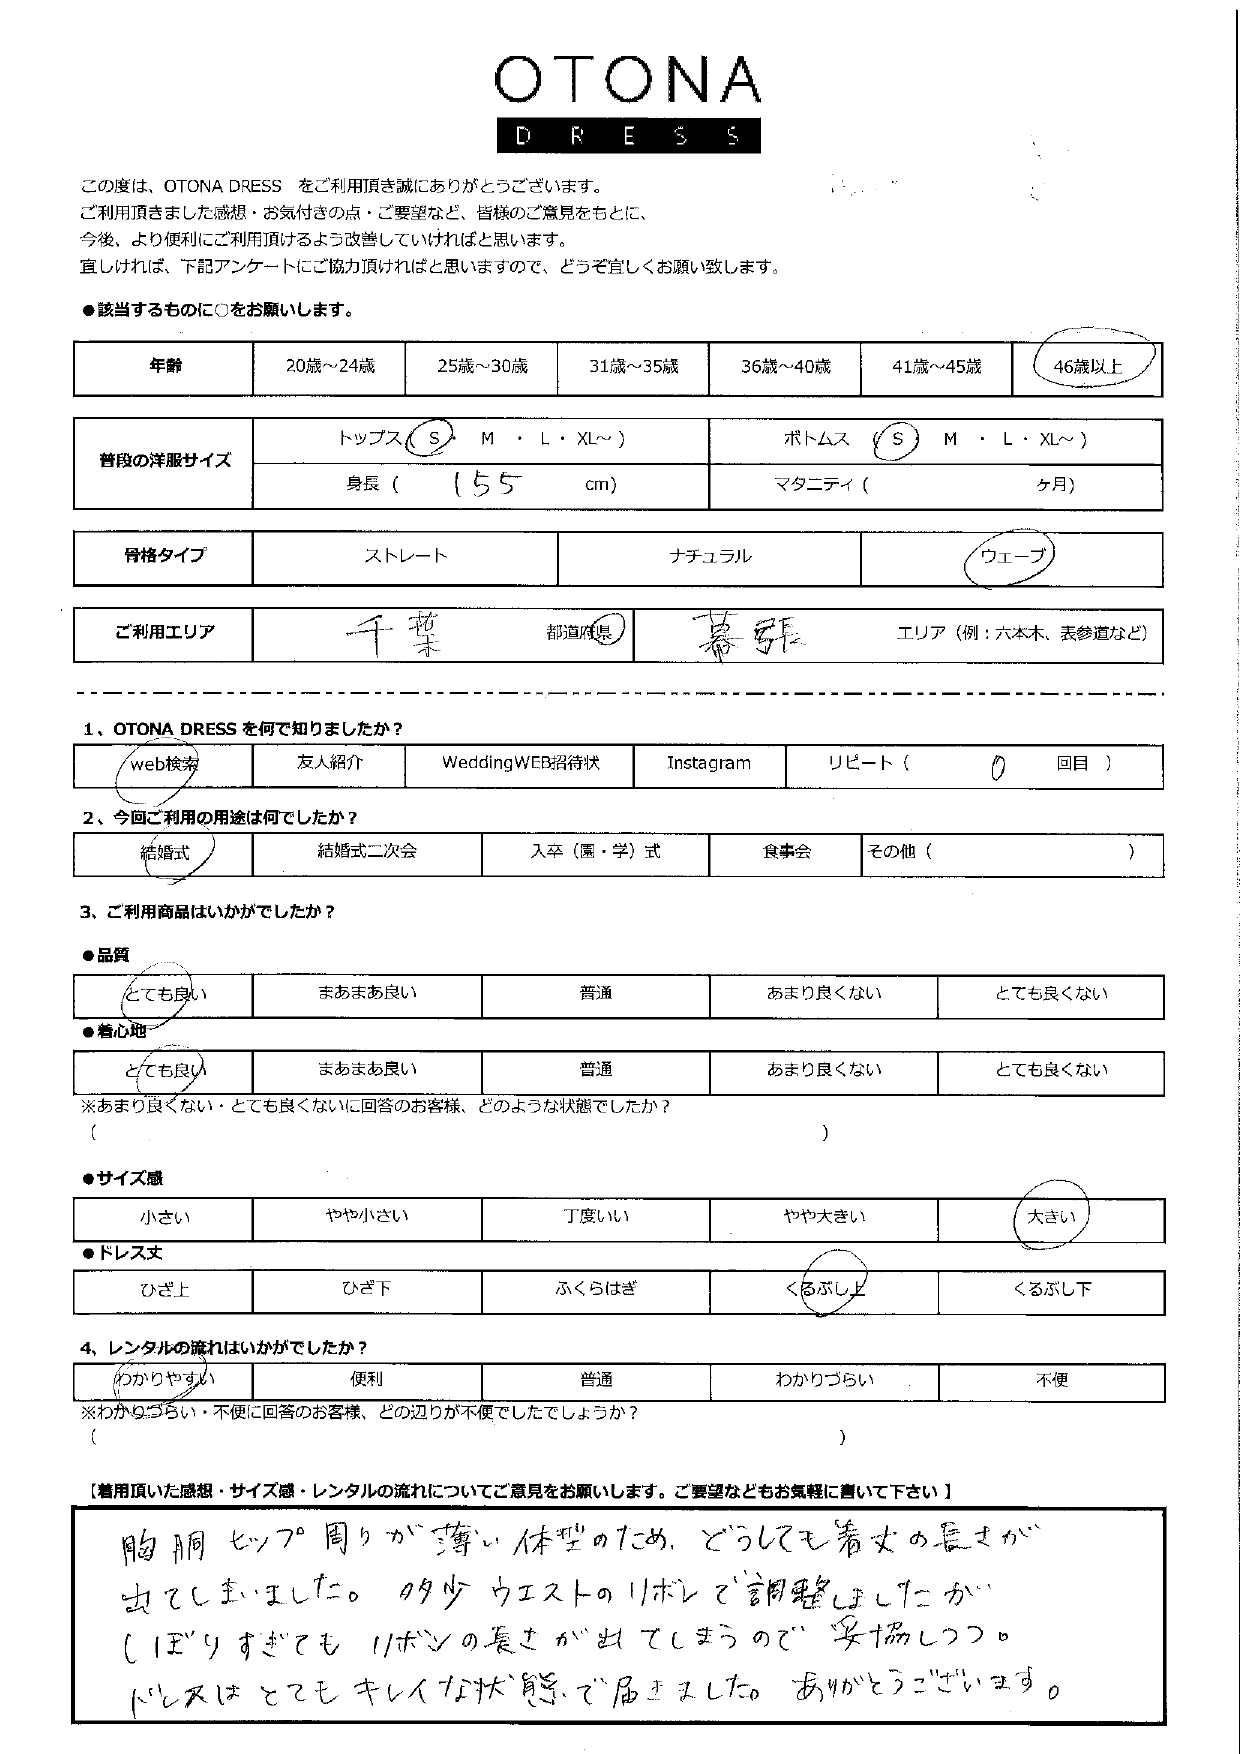 OTONA
DRESS
この度は、OTONA DRESS をご利用頂き誠にありがとうございます。
ご利用頂きました感想・お気付きの点・ご要望など、皆様のご意見をもとに、
今後、より便利にご利用頂けるよう改善していければと思います。
宜しければ、下記アンケートにご協力頂ければと思いますので、どうぞ宜しくお願い致します。
●該当するものに○をお願いします。
年齢 20歳～24歳 25歳～30歳 31歳～35歳 36歳～40歳 41歳～45歳 46歳以上
普段の洋服サイズ トップス( S ・ M ・ L ・ XL～ ) ボトムス ( S ・ M ・ L ・ XL～ )
身長 ( 155 cm) マタニティ ( ヶ月)
骨格タイプ ストレート ナチュラル ウェーブ
ご利用エリア 千葉 都道府県 幕張 エリア（例：六本木、表参道など）
1、OTONA DRESS を何で知りましたか？
web検索 友人紹介 WeddingWEB招待状 Instagram リピート ( 0 回目 )
2、今回ご利用の用途は何でしたか？
結婚式 結婚式二次会 入卒（園・学）式 食事会 その他 ( )
3、ご利用商品はいかがでしたか？
●品質
とても良い まあまあ良い 普通 あまり良くない とても良くない
●着心地
とても良い まあまあ良い 普通 あまり良くない とても良くない
※あまり良くない・とても良くないに回答のお客様、どのような状態でしたか？
( )
●サイズ感
小さい やや小さい 丁度いい やや大きい 大きい
●ドレス丈
ひざ上 ひざ下 ふくらはぎ くるぶし上 くるぶし下
4、レンタルの流れはいかがでしたか？
わかりやすい 便利 普通 わかりづらい 不便
※わかりづらい・不便に回答のお客様、どの辺りが不便でしたでしょうか？
( )
【着用頂いた感想・サイズ感・レンタルの流れについてご意見をお願いします。ご要望などもお気軽に書いて下さい 】
胸 胴 ヒップ 周りが薄い体型のため、どうしても着丈の長さが
出てしまいました。多少ウエストのリボンで調整しましたが
しぼりすぎても リボンの長さが出てしまうので 妥協しつつ。
ドレスはとてもキレイな状態で届きました。ありがとうございます。